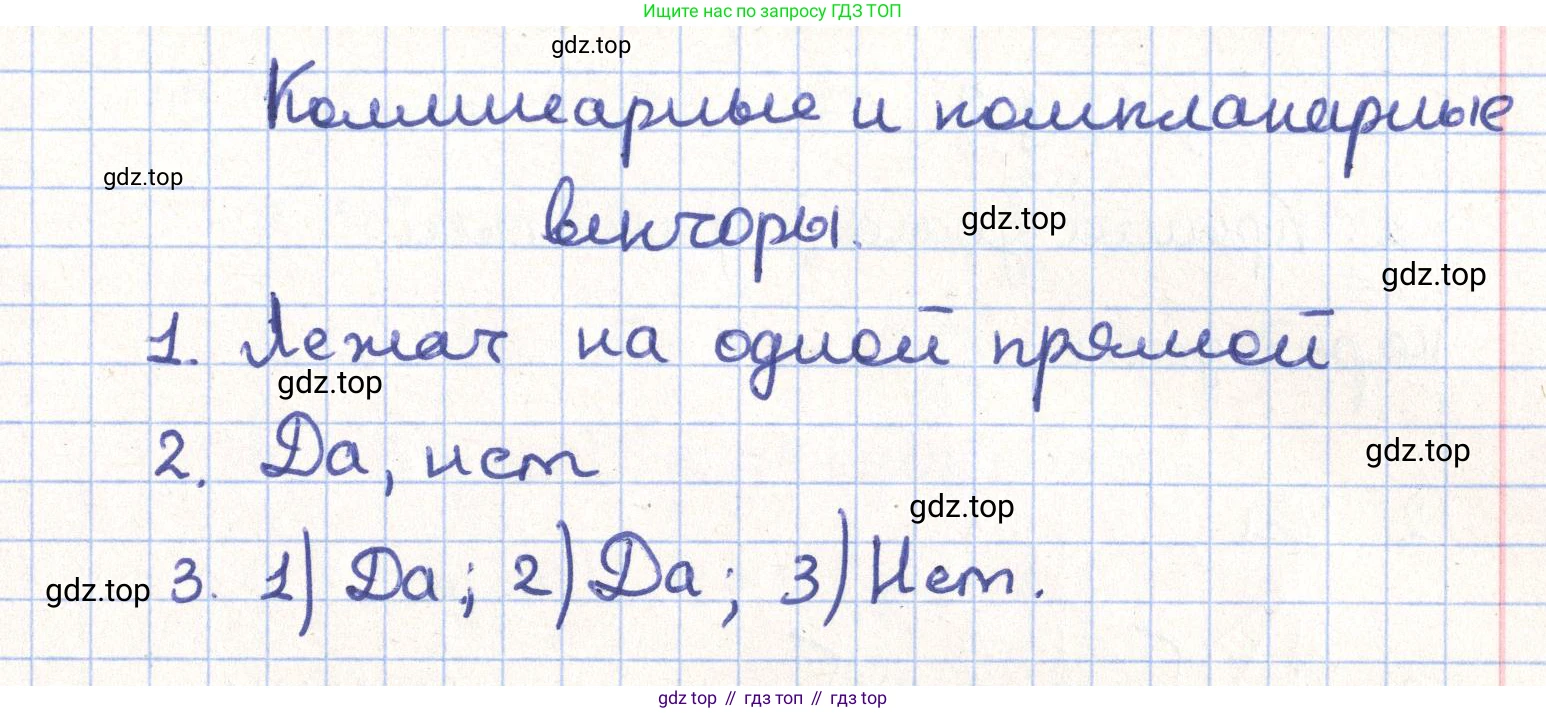 Ищите нас по запросу ГДЗ ТОП
gdz.top
Коллинеарные и компланарные
gdz.top
векторы.
gdz.top
gdz.top
1. Лежат на одной прямой
gdz.top
2. Да, нет
gdz.top
gdz.top
3. 1) Да; 2) Да; 3) Нет.
gdz.top
gdz top // гдз топ // гдз top